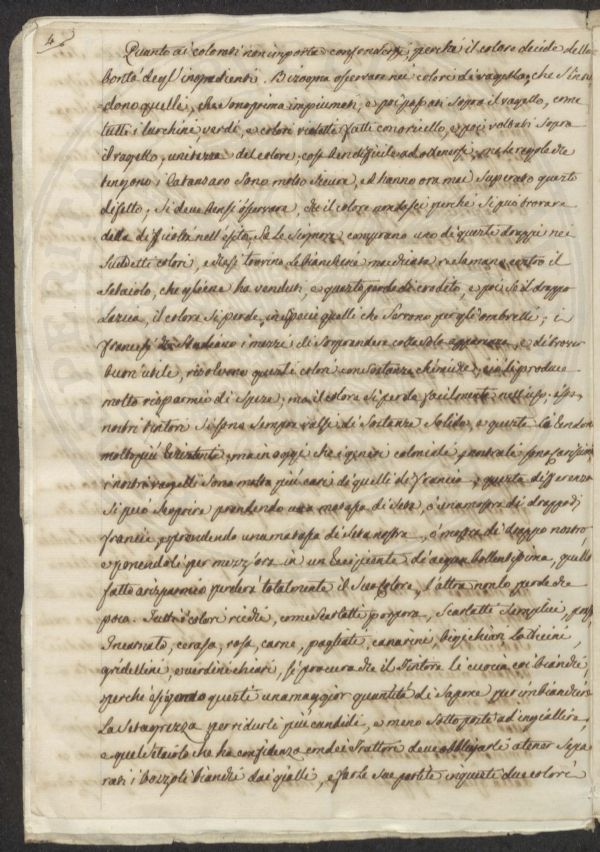 4.
Quanto ai colorati non importa confondersi, perché il colore decide della
bontà degl'ingredienti. Bisogna osservare nei colori di vagello, che s'inten
=dono quelle, che sono prima impiumati, e poi passati sopra il vagello, come
tutti i turchini verdi, e colori violetti fatti con oricello, e poi voltati sopra
il vagello, unitezza del colore, cosa ben difficile ad ottenersi, ma le regole che
tengono i Catanzaro sono molto sicure, ed hanno ora mai superato questo
difetto, si deve bensì osservare, che il colore non desci perché si può trovare
delle difficoltà nell'esito. Se le Signore comprano uno di questi drappi nei
suddetti colori, e che si trovino le biancherie macchiate, reclamano contro il
Setaiolo, che gliene ha venduti, e questo perde di credito, e poi se il drappo
il colore si perde, in specie quelli che servono per gl'ombrelli; i
Francesi che studiano i mezzi di sorprendere colla sola apparenza, e di trovar
buon'utile, risolverno questi colori con sostanze chimiche, ciò li produce
molto risparmio di spese, ma il colore si perde facilmente nell'uso. I
nostri tintori si sono sempre valsi di sostanze solide, e queste la rendono
molto più resistente, ma in oggi che i generi coloniali sono carissimi
i nostri vagelli sono molto più cari di quelli di Francia, e questa differenza
si può scoprire prendendo una matassa di seta, o una mostra di drappo di
Francia, e prendendo una matassa di seta nostra, o mostra di drappo nostro
e ponendoli per mezz'ora in un recipiente di acqua bollentissima, quello
fatto a risparmio perderà totalmente il suo colore, l'altra non lo perde che
poco. Tutti i colori ricchi, come Scarlatto porpora, Scarlatto semplice, ponsò
Incarnato, cerasa, rosa, carne, pagliati, canarini, bigi chiari latticini,
gridellini, e verdini chiari, si procura che il Tintore li cuocia coi bianchi,
perché esigendo questi una maggior quantità di sapone per imbianchire
la seta grezza per ridurli più candidi, e meno sottoposti ad ingiallire,
e quel Setaiolo che ha confidenza con dei Trattori deve obbligarli a tener sepa
rati i bozzoli bianchi dai gialli, e farle sue partite in queste due colori